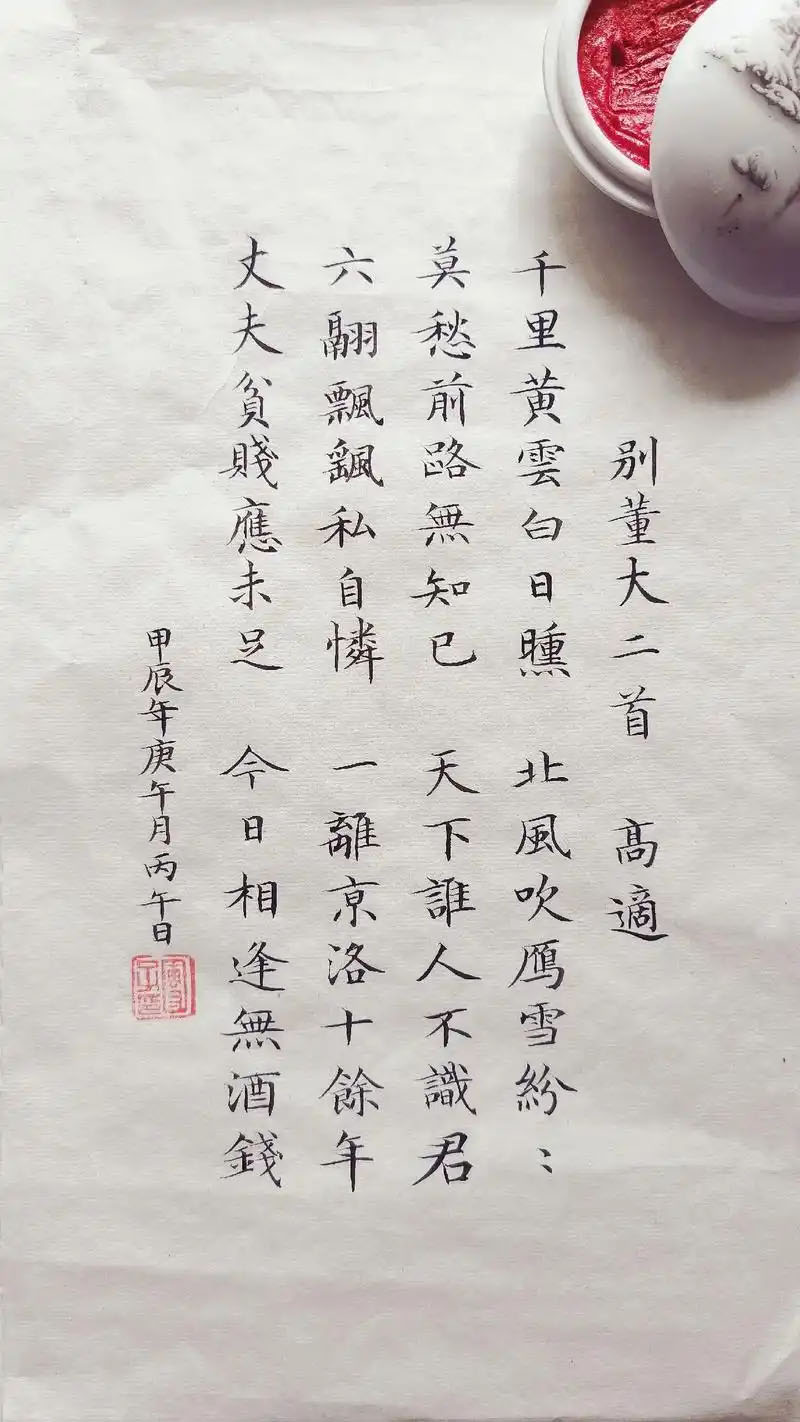 别董大二首 高適
千里黄雲白日曛 北風吹鴈雪紛〻
莫愁前路無知已 天下誰人不識君
六翮飄飖私自憐 一離京洛十餘年
丈夫貧賤應未足 今日相逢無酒錢
甲辰年庚午月丙午日